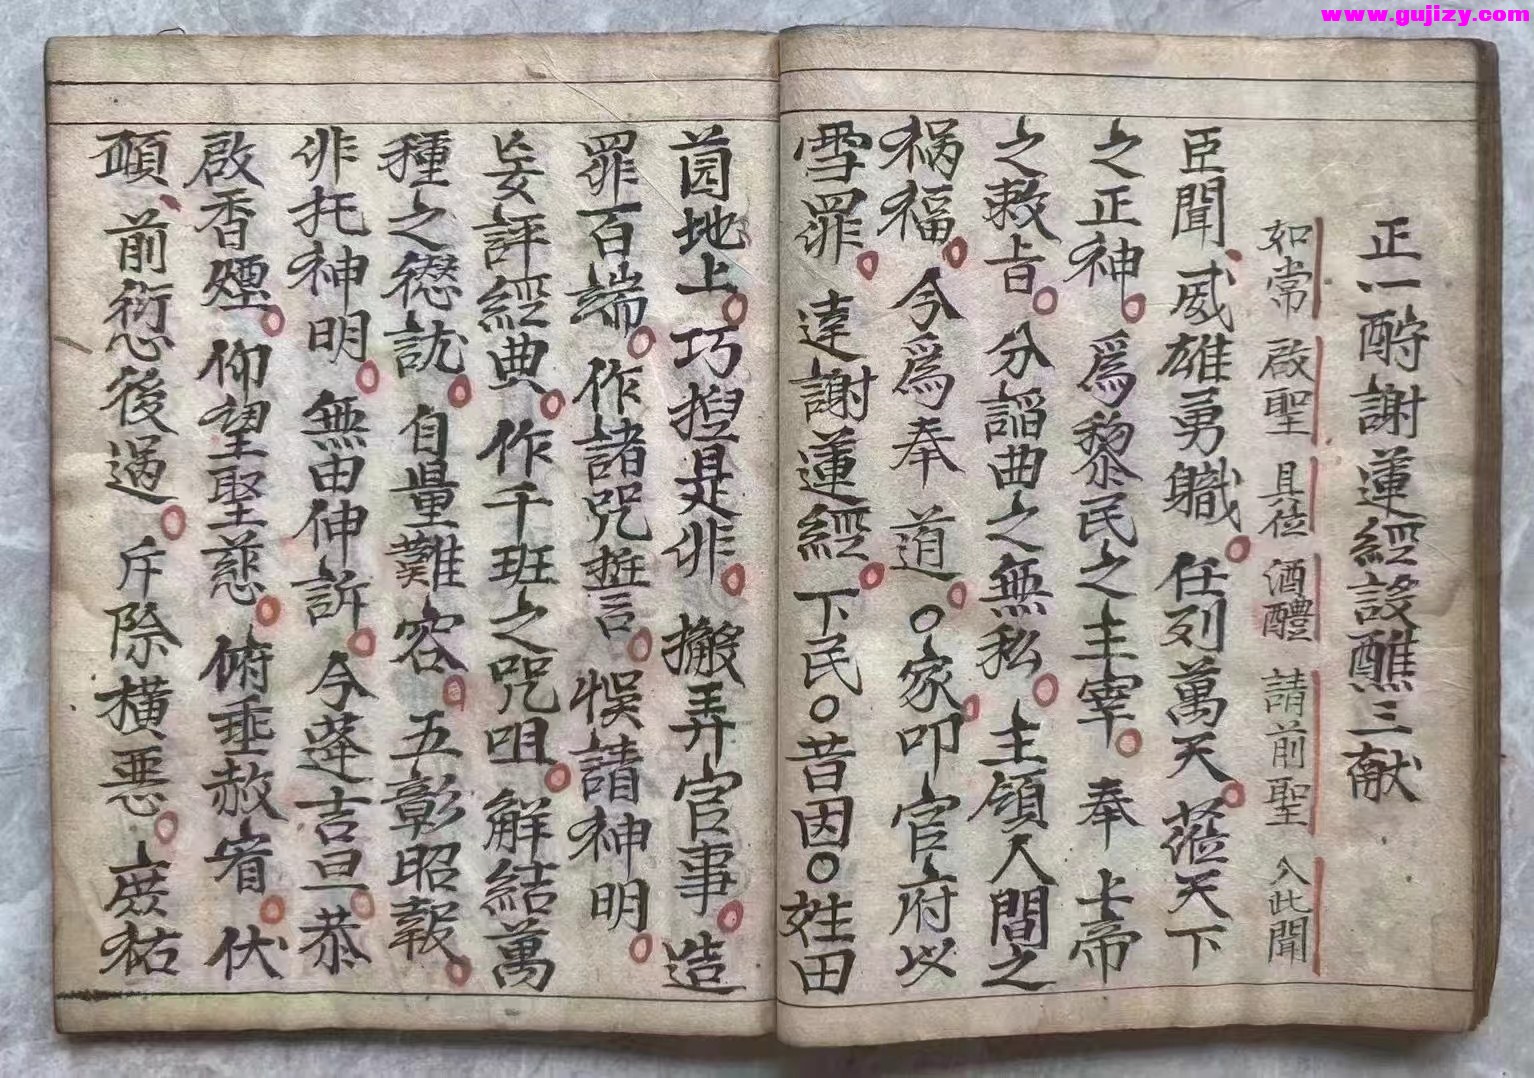 www.gujizy.com
正一酧謝蓮經設醮三献
如常 啟聖 具位 酒醴 請前聖 入此聞
臣聞、威雄勇職。任列萬天。蒞天下
之正神。爲黎民之主宰。奉上帝
之敕旨。分謟曲之無私。主領人間之
禍福。今爲奉道。○家叩官府以
雪罪。達謝蓮經。下民○昔因○姓田
園地上。巧揑是非。搬弄官事。造
罪百端。作諸咒誓言。悞請神明。
妄評經典。作千班之咒咀。解結萬
種之愆訧。自量難容。五彰昭報。
非托神明。無由伸訴。今逢吉旦。恭
啟香煙。仰望聖慈。俯垂赦宥。伏
願、前衍後過。斥除橫惡。庶祐